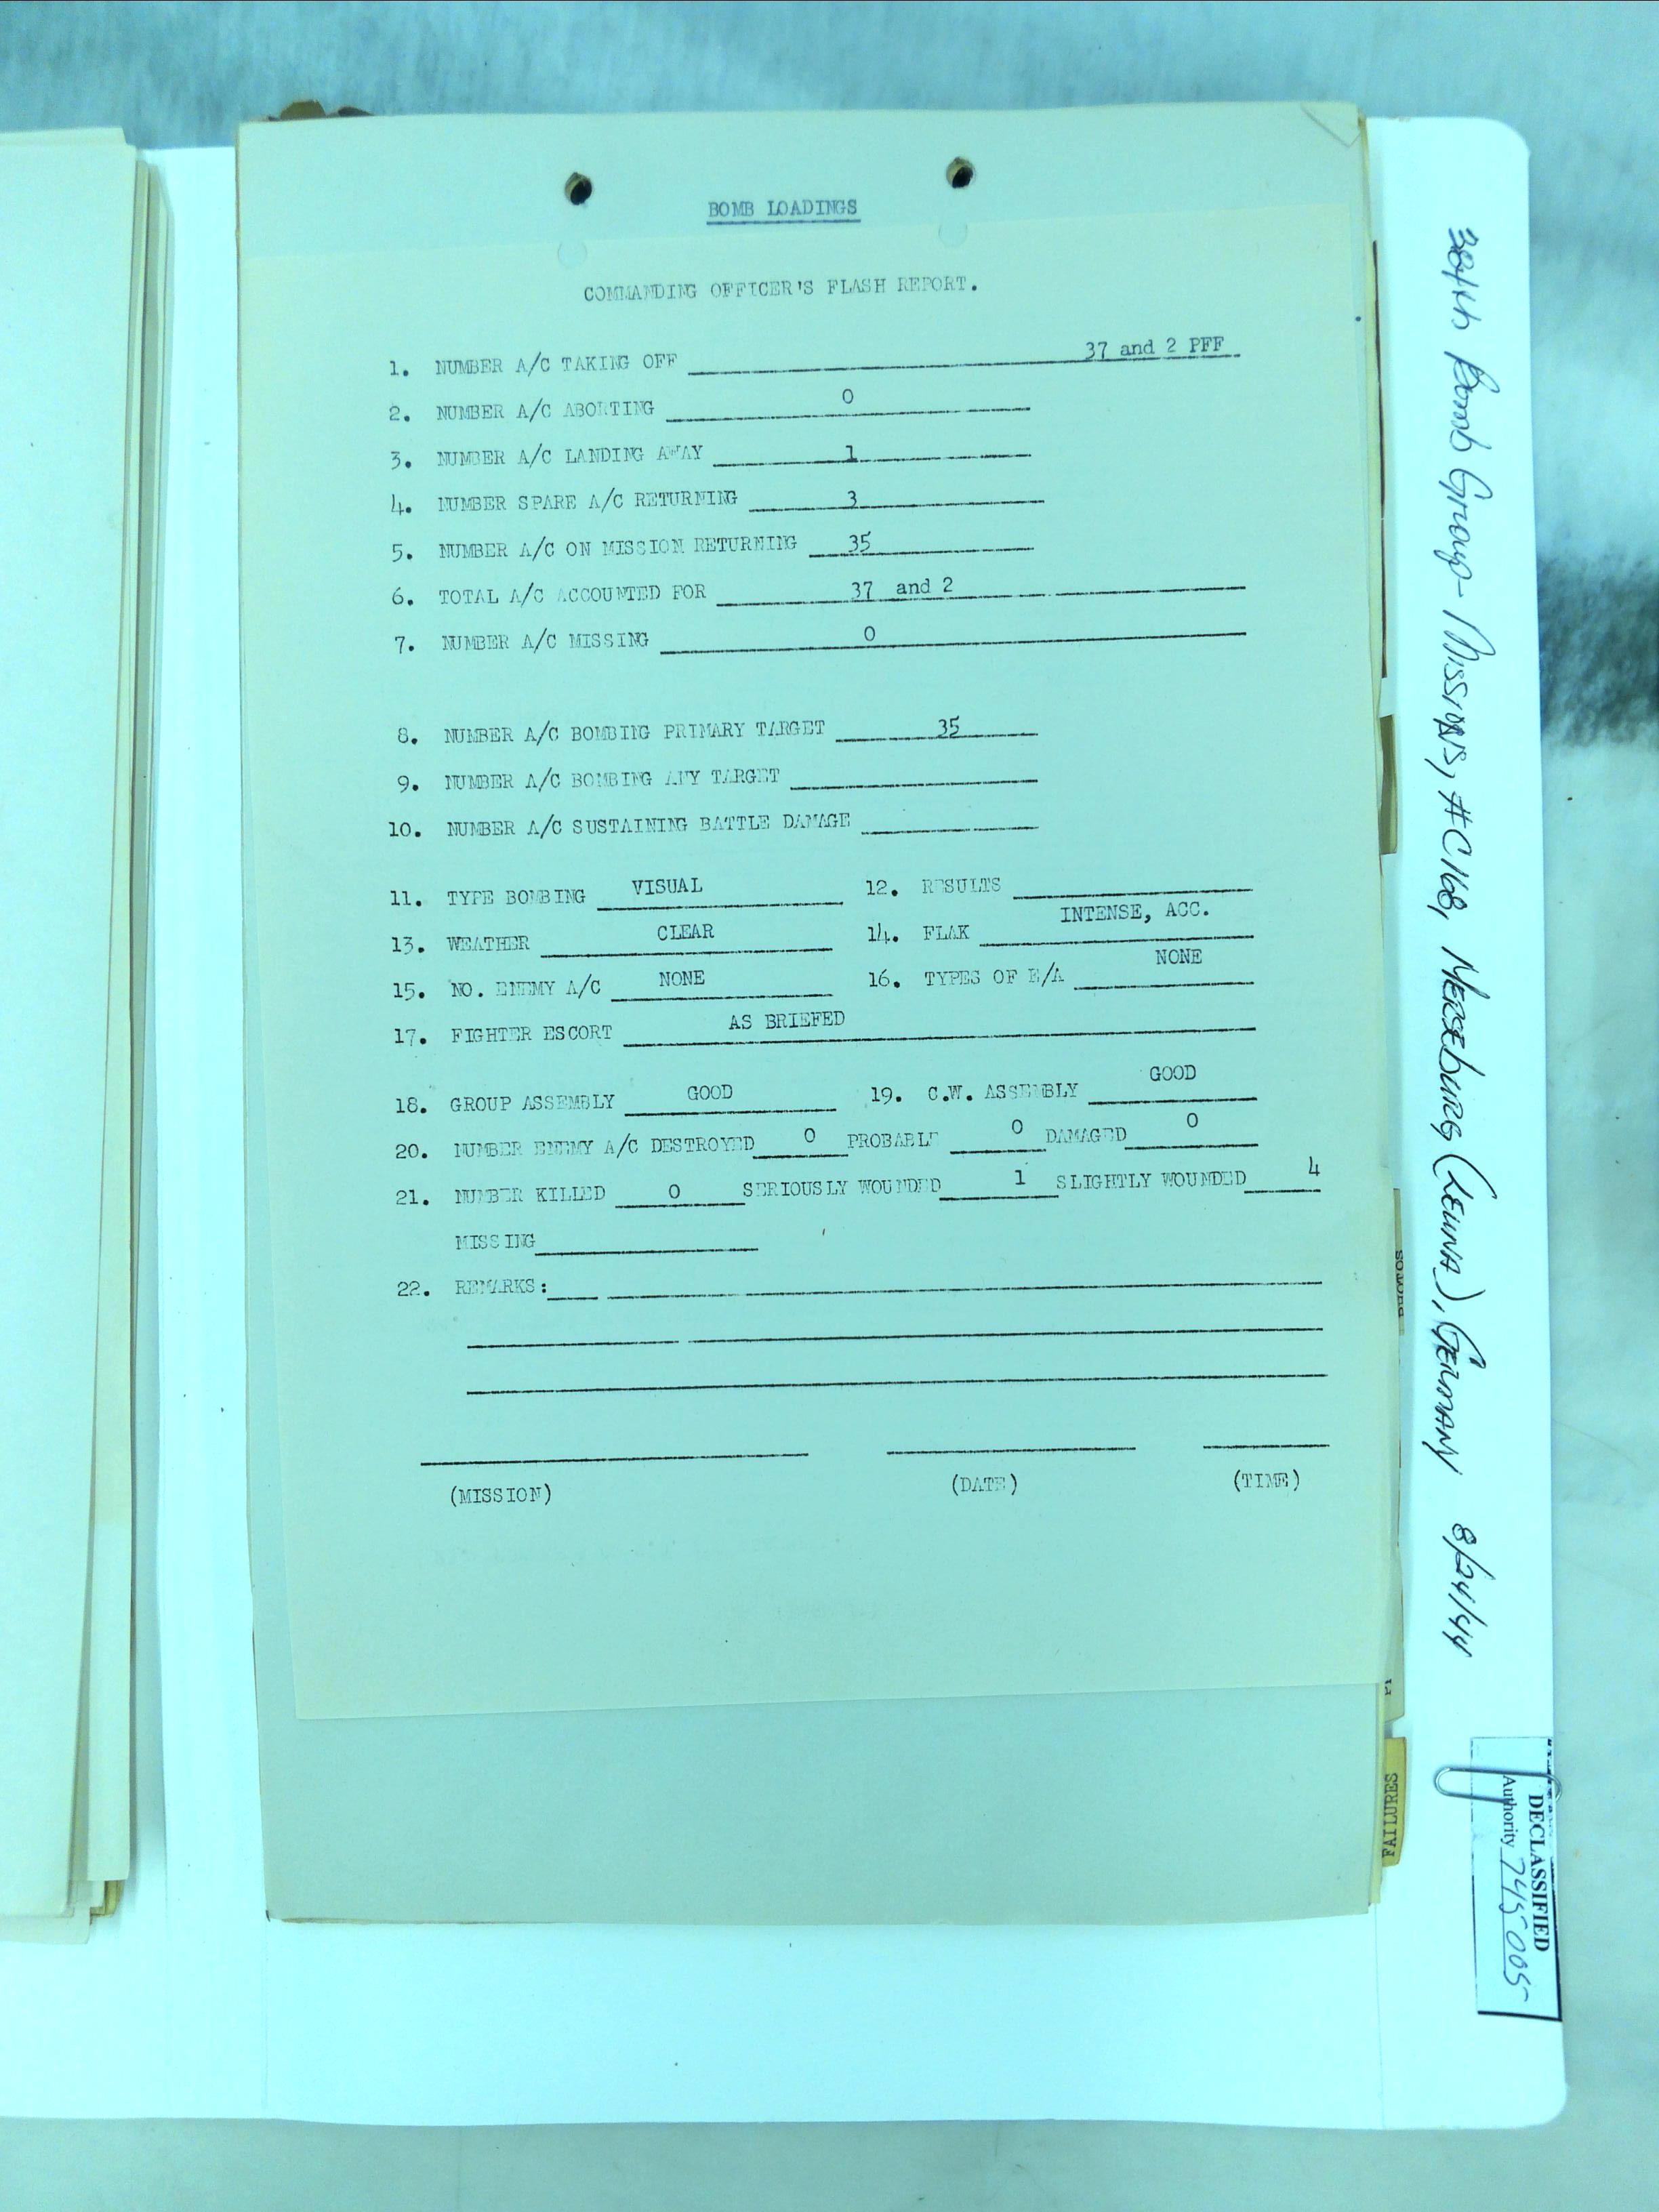 BOMB LOADINGS
COMMANDING OFFICER'S FLASH REPORT.
1. NUMBER A/C TAKING OFF 37 and 2 PFF
2. NUMBER A/C ABORTING 0
3. NUMBER A/C LANDING AWAY 1
4. NUMBER SPARE A/C RETURNING 3
5. NUMBER A/C ON MISSION RETURNING 35
6. TOTAL A/C ACCOUNTED FOR 37 and 2
7. NUMBER A/C MISSING 0
8. NUMBER A/C BOMBING PRIMARY TARGET 35
9. NUMBER A/C BOMBING ANY TARGET
10. NUMBER A/C SUSTAINING BATTLE DAMAGE
11. TYPE BOMBING VISUAL 12. RESULTS
13. WEATHER CLEAR 14. FLAK INTENSE, ACC.
15. NO. ENEMY A/C NONE 16. TYPES OF E/A NONE
17. FIGHTER ESCORT AS BRIEFED
18. GROUP ASSEMBLY GOOD 19. C.W. ASSEMBLY GOOD
20. NUMBER ENEMY A/C DESTROYED 0 PROBABLE 0 DAMAGED 0
21. NUMBER KILLED 0 SERIOUSLY WOUNDED 1 SLIGHTLY WOUNDED 4
MISSING
22. REMARKS:
(MISSION) (DATE) (TIME)
384th Bomb Group - Missions, #C168, Merseburg (Leuna), Germany 8/24/44
FAILURES
DECLASSIFIED
Authority 745005